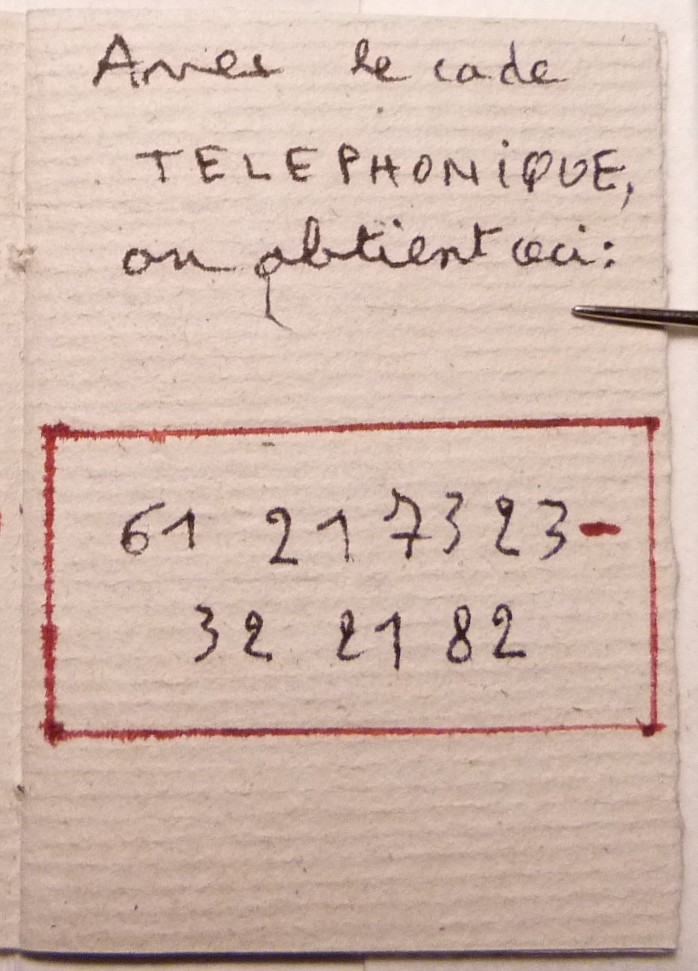 Avec le code
TELEPHONiQUE,
on obtient ceci:
61 21 73 23-
32 21 82